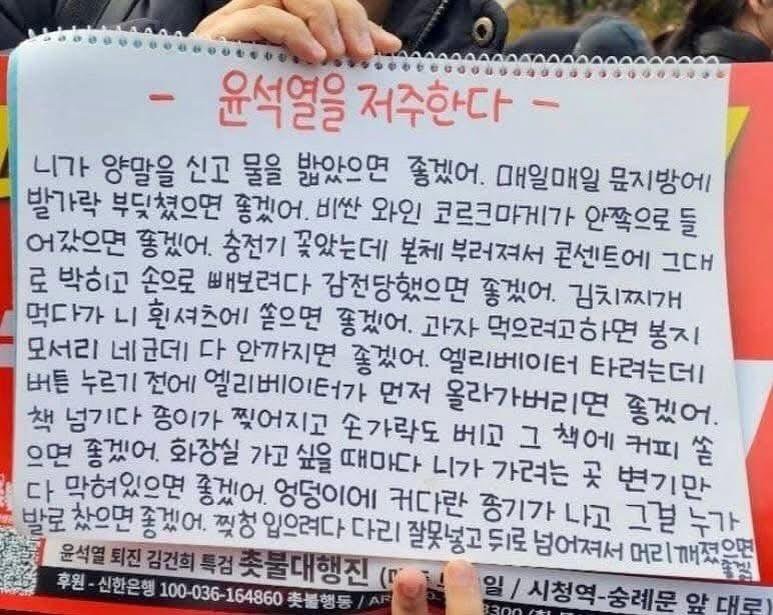 - 윤석열을 저주한다 -
니가 양말을 신고 물을 밟았으면 좋겠어. 매일매일 뮤지방에
발가락 부딪쳤으면 좋겠어. 비싼 와인 코르크마게가 안쪽으로 들
어갔으면 좋겠어. 충전기 꽂았는데 본체 부러져서 콘센트에 그대
로 박히고 손으로 빼보려다 감전당했으면 좋겠어. 김치찌개
먹다가 니 흰셔츠에 쏟으면 좋겠어. 과자 먹으려고하면 봉지
모서리 네군데 다 안까지면 좋겠어. 엘리베이터 타려는데
버튼 누르기 전에 엘리베이터가 먼저 올라가버리면 좋겠어.
책 넘기다 종이가 찢어지고 손가락도 베고 그 책에 커피 쏟
으면 좋겠어. 화장실 가고 싶을 때마다 니가 가려는 곳 변기만
다 막혀있으면 좋겠어. 엉덩이에 커다란 종기가 나고 그걸 누가
발로 찼으면 좋겠어. 찢청 입으려다 다리 잘못넣고 뒤로 넘어져서 머리 깨졌으면
좋겠어
윤석열 퇴진 김건희 특검 촛불대행진
일 / 시청역-숭례문 앞 대로
후원 - 신한은행 100-036-164860 촛불행동 /